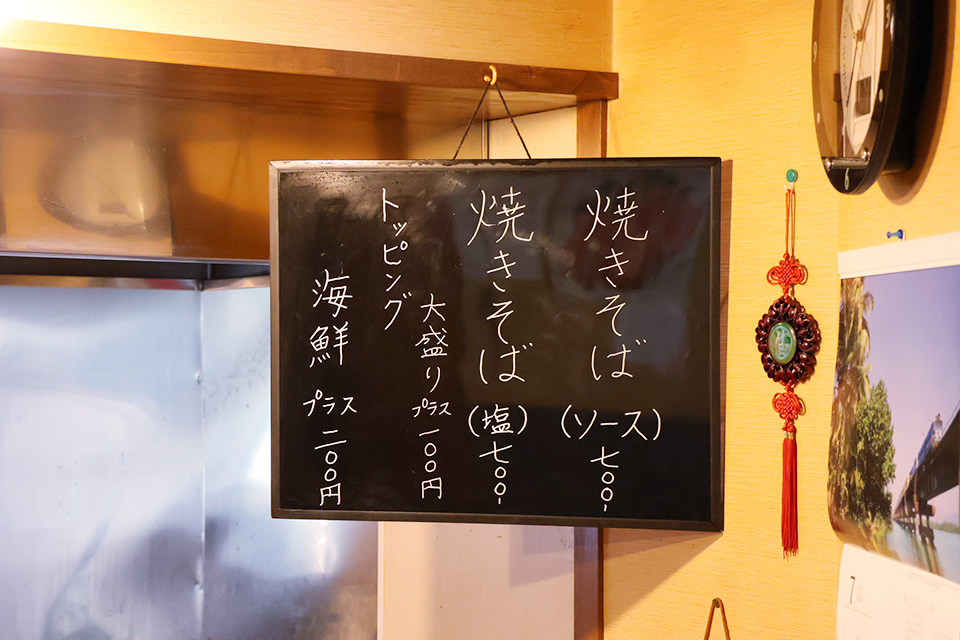 焼きそば(ソース)七〇〇-
焼きそば(塩)七〇〇-
大盛りプラス一〇〇円
トッピング
海鮮プラス二〇〇円
7